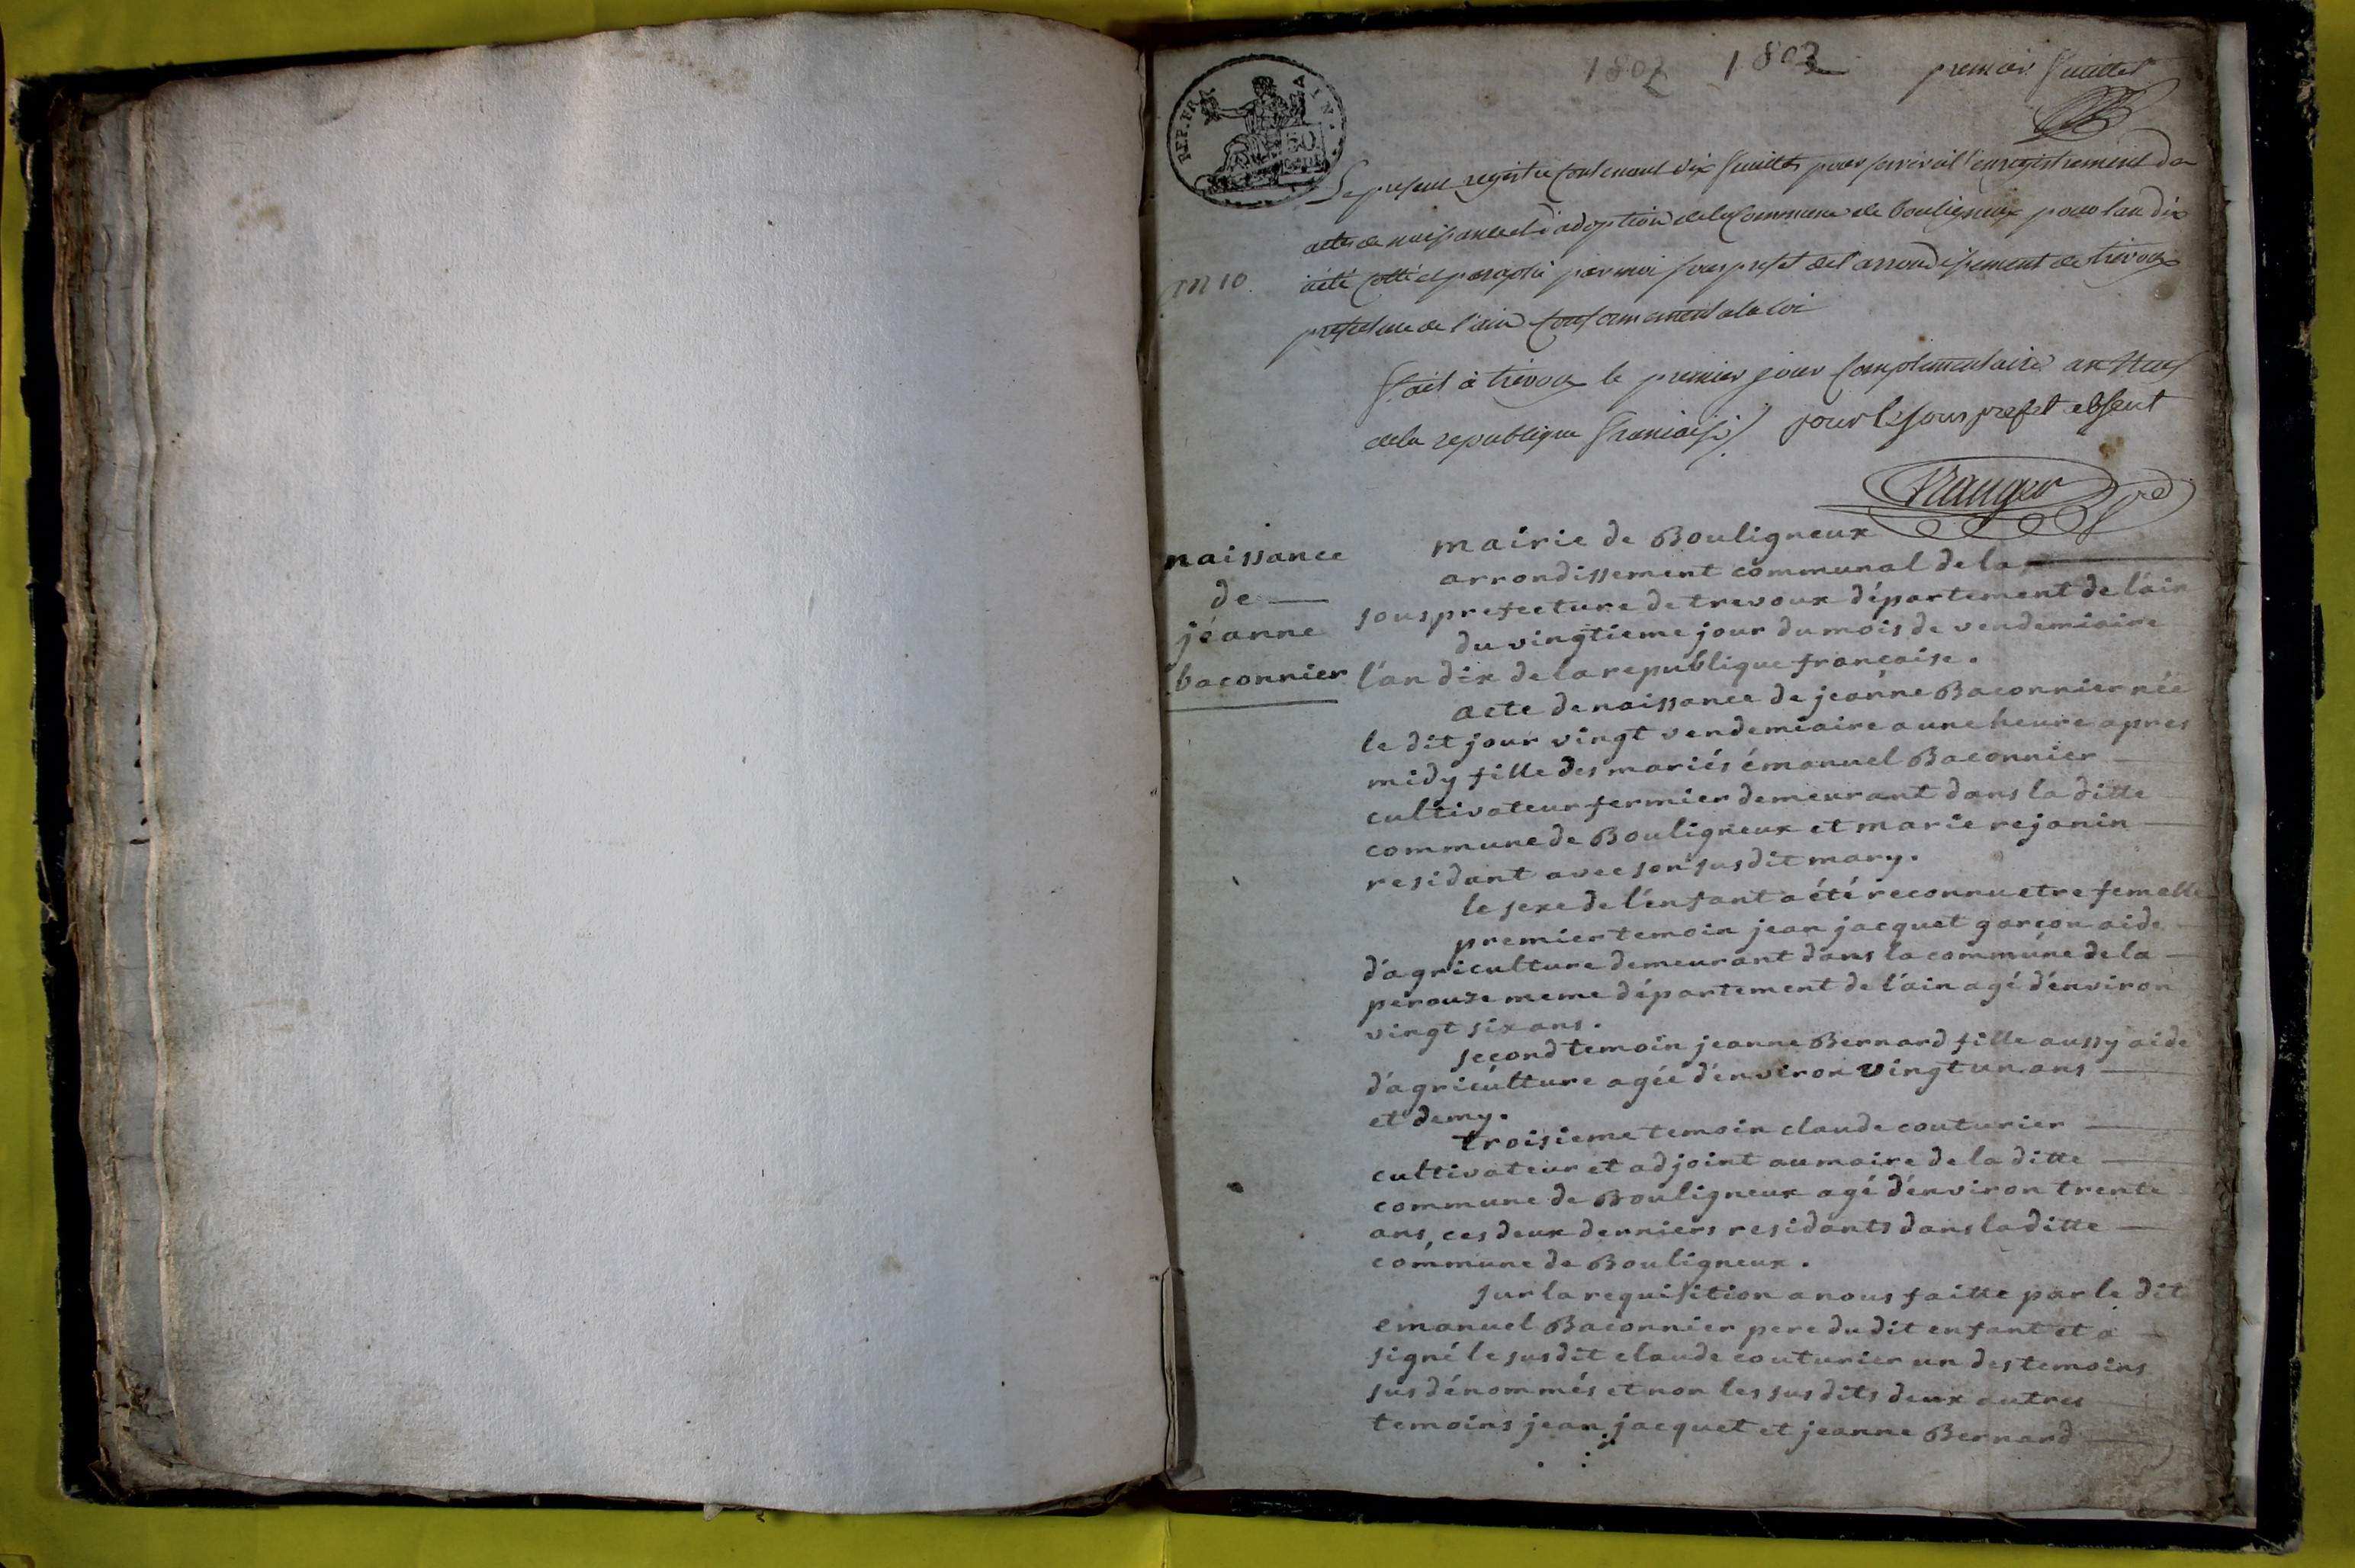 1802 1803 premier feuillet
REP. FRA AIN.
50
CENT
Le present registre contenant dix feuillets pour servir à l'enregistrement des
actes de naissance et d'adoption de la Commune de bouligneux pour l'an dix
an 10. a été cotté et paraphé par moi sous prefet de l'arrondissement de trevoux
prefecture de l'ain conformement a la loi
fait à trevoux le premier jour complementaire an neuf
de la republique française / pour le sous prefet absent
mairie de Bouligneux
arrondissement communal de la
sous prefecture de trevoux département de l'ain
du vingtieme jour du mois de vendemiaire
l'an dix de la republique francaise.
naissance
de
jéanne
baconnier
acte de naissance de jeanne Baconnier née
le dit jour vingt vendemiaire a une heure apres
midy fille des mariés émanuel Baconnier
cultivateur fermier demeurant dans la ditte
commune de Bouligneux et marie rejanin
residant avec son susdit mary.
le sexe de l'enfant a été reconnu etre femelle
premier temoin jean jacquet garçon aide
d'agriculture demeurant dans la commune de la
perouze meme département de l'ain agé d'environ
vingt six ans.
second temoin jeanne Bernard fille aussy aide
d'agriculture agée d'environ vingt un ans
et demy.
troisieme temoin claude couturier
cultivateur et adjoint au maire de la ditte
commune de Bouligneux agé d'environ trente
ans, ces deux derniers residants dans la ditte
commune de Bouligneux.
sur la requisition a nous faitte par le dit
emanuel Baconnier pere du dit enfant et a
signé le susdit claude couturier un des temoins
sus dénommés et non les sus dits deux autres
temoins jean jacquet et jeanne Bernard